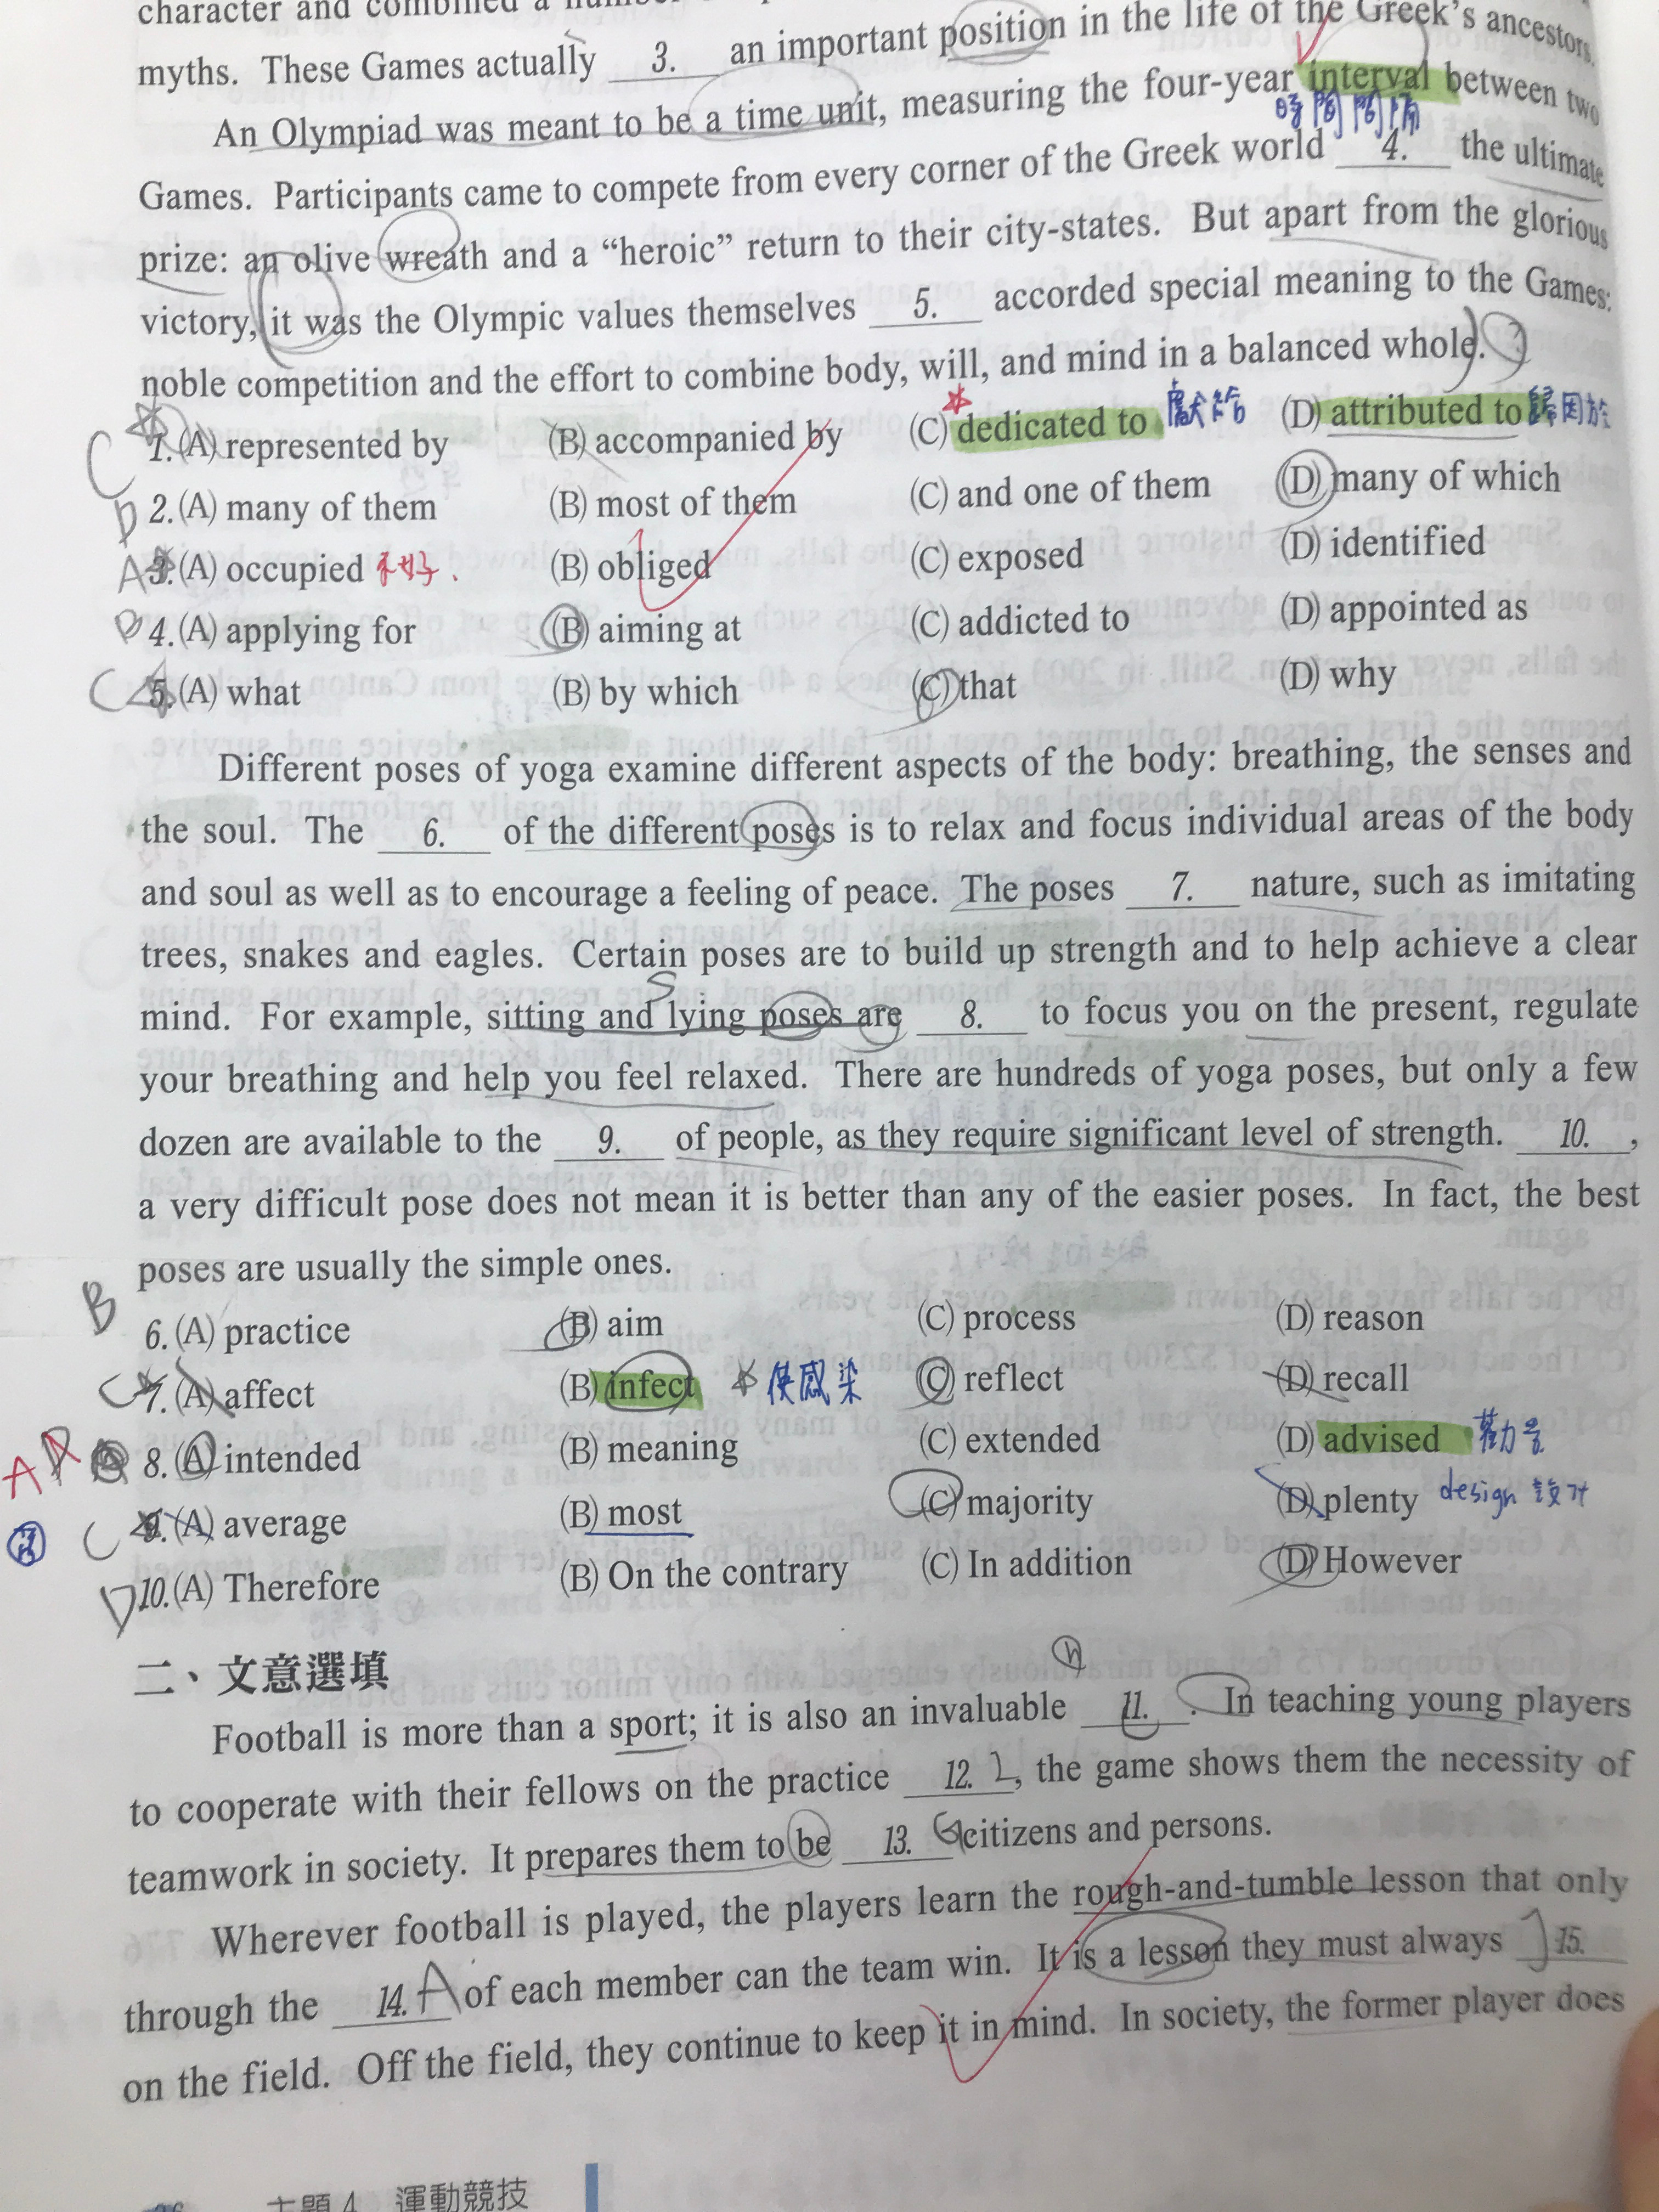 character and combined a number
myths. These Games actually 3. an important position in the life of the Greek's ancestors.
An Olympiad was meant to be a time unit, measuring the four-year interval between two
時間間隔
Games. Participants came to compete from every corner of the Greek world 4. the ultimate
prize: an olive wreath and a “heroic” return to their city-states. But apart from the glorious
victory, it was the Olympic values themselves 5. accorded special meaning to the Games:
noble competition and the effort to combine body, will, and mind in a balanced whole. ?
C 1. (A) represented by (B) accompanied by (C) dedicated to 獻給 (D) attributed to 歸因於
D 2. (A) many of them (B) most of them (C) and one of them (D) many of which
A 3. (A) occupied (B) obliged (C) exposed (D) identified
B 4. (A) applying for (B) aiming at (C) addicted to (D) appointed as
C 5. (A) what (B) by which (C) that (D) why
Different poses of yoga examine different aspects of the body: breathing, the senses and
the soul. The 6. of the different poses is to relax and focus individual areas of the body
and soul as well as to encourage a feeling of peace. The poses 7. nature, such as imitating
trees, snakes and eagles. Certain poses are to build up strength and to help achieve a clear
S
mind. For example, sitting and lying poses are 8. to focus you on the present, regulate
your breathing and help you feel relaxed. There are hundreds of yoga poses, but only a few
dozen are available to the 9. of people, as they require significant level of strength. 10. ,
a very difficult pose does not mean it is better than any of the easier poses. In fact, the best
poses are usually the simple ones.
B 6. (A) practice (B) aim (C) process (D) reason
C 7. (A) affect (B) infect 使感染 (C) reflect (D) recall
A A 8. (A) intended (B) meaning (C) extended (D) advised 勸告
C 9. (A) average (B) most (C) majority (D) plenty design 設計
D 10. (A) Therefore (B) On the contrary (C) In addition (D) However
二、文意選填
n
Football is more than a sport; it is also an invaluable 11. . In teaching young players
to cooperate with their fellows on the practice 12. , the game shows them the necessity of
teamwork in society. It prepares them to be 13. G citizens and persons.
Wherever football is played, the players learn the rough-and-tumble lesson that only
through the 14. A of each member can the team win. It is a lesson they must always J 15.
on the field. Off the field, they continue to keep it in mind. In society, the former player does
主題 4 運動競技